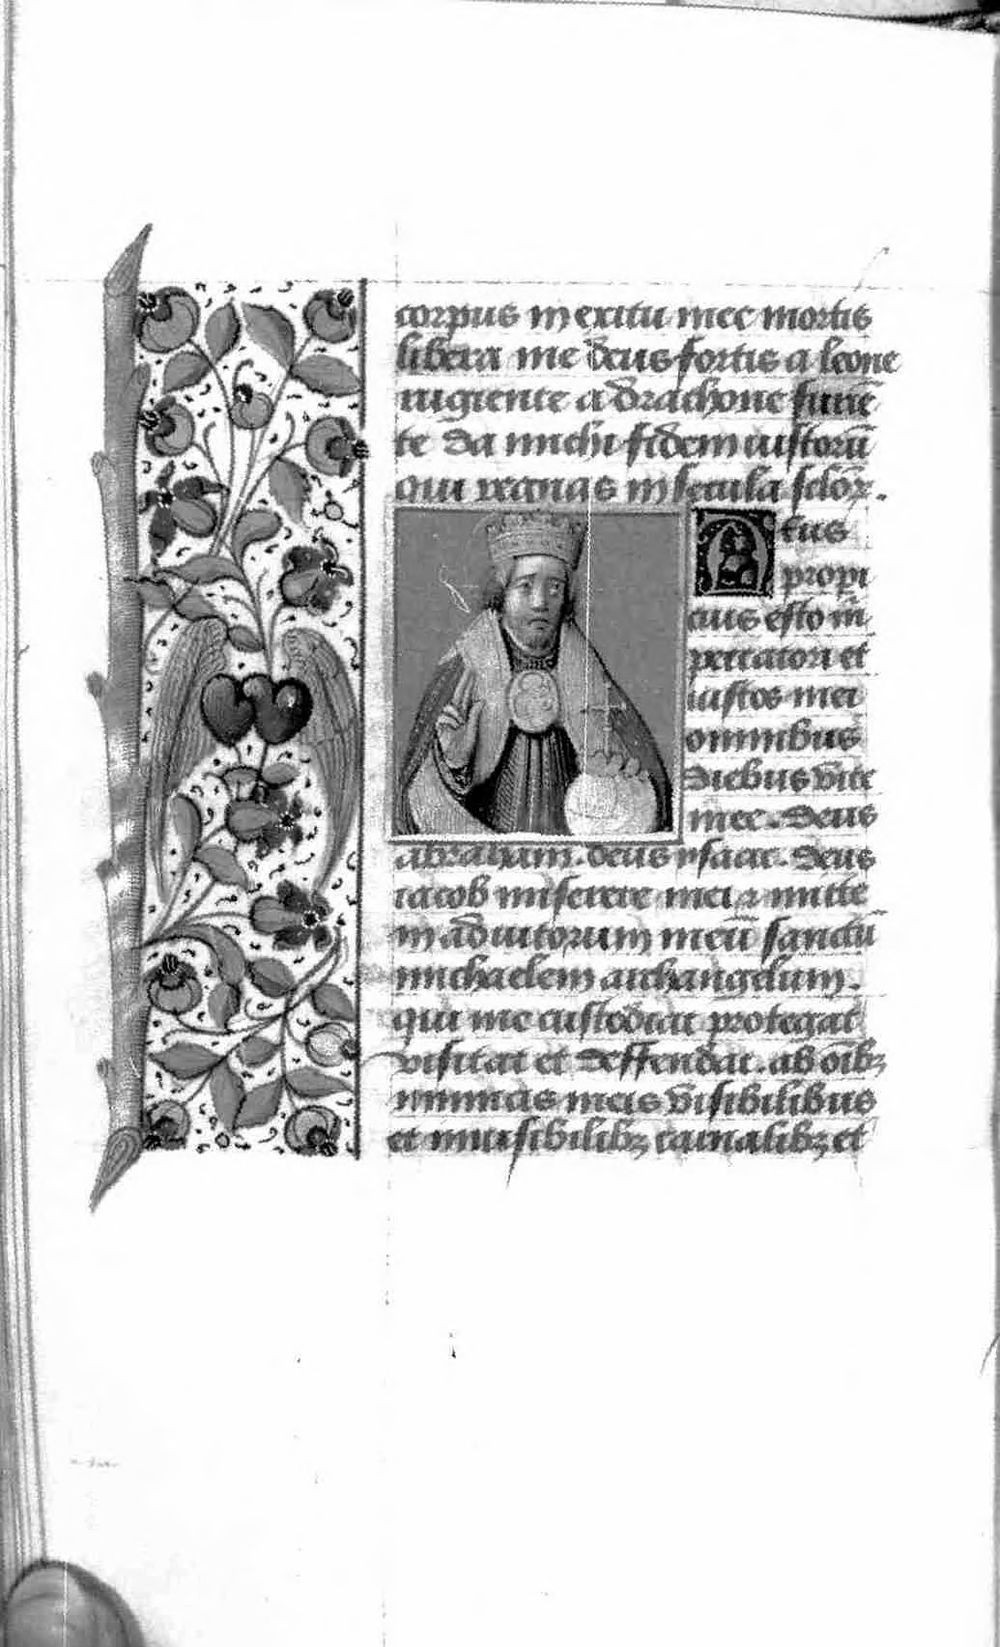 corpus in exitu mee mortis
libera me deus fortis a leone
rugiente a drachone fune
te da michi fidem iustorū
qui regnas in secula sclor̄.
Atus
propi
cius esto m̄
peccatori et
custos mei
omnibus
diebus vite
mee. Deus
abraham. deus ysaac. Deus
iacob miserere mei ⁊ mitte
in adiutorium meū sanctū
michaelem archangelum.
qui me custodiat protegat
visitat et deffendat. ab oīb3
inimicis meis visibilibus
et inuisibilib3 carnalib3 et